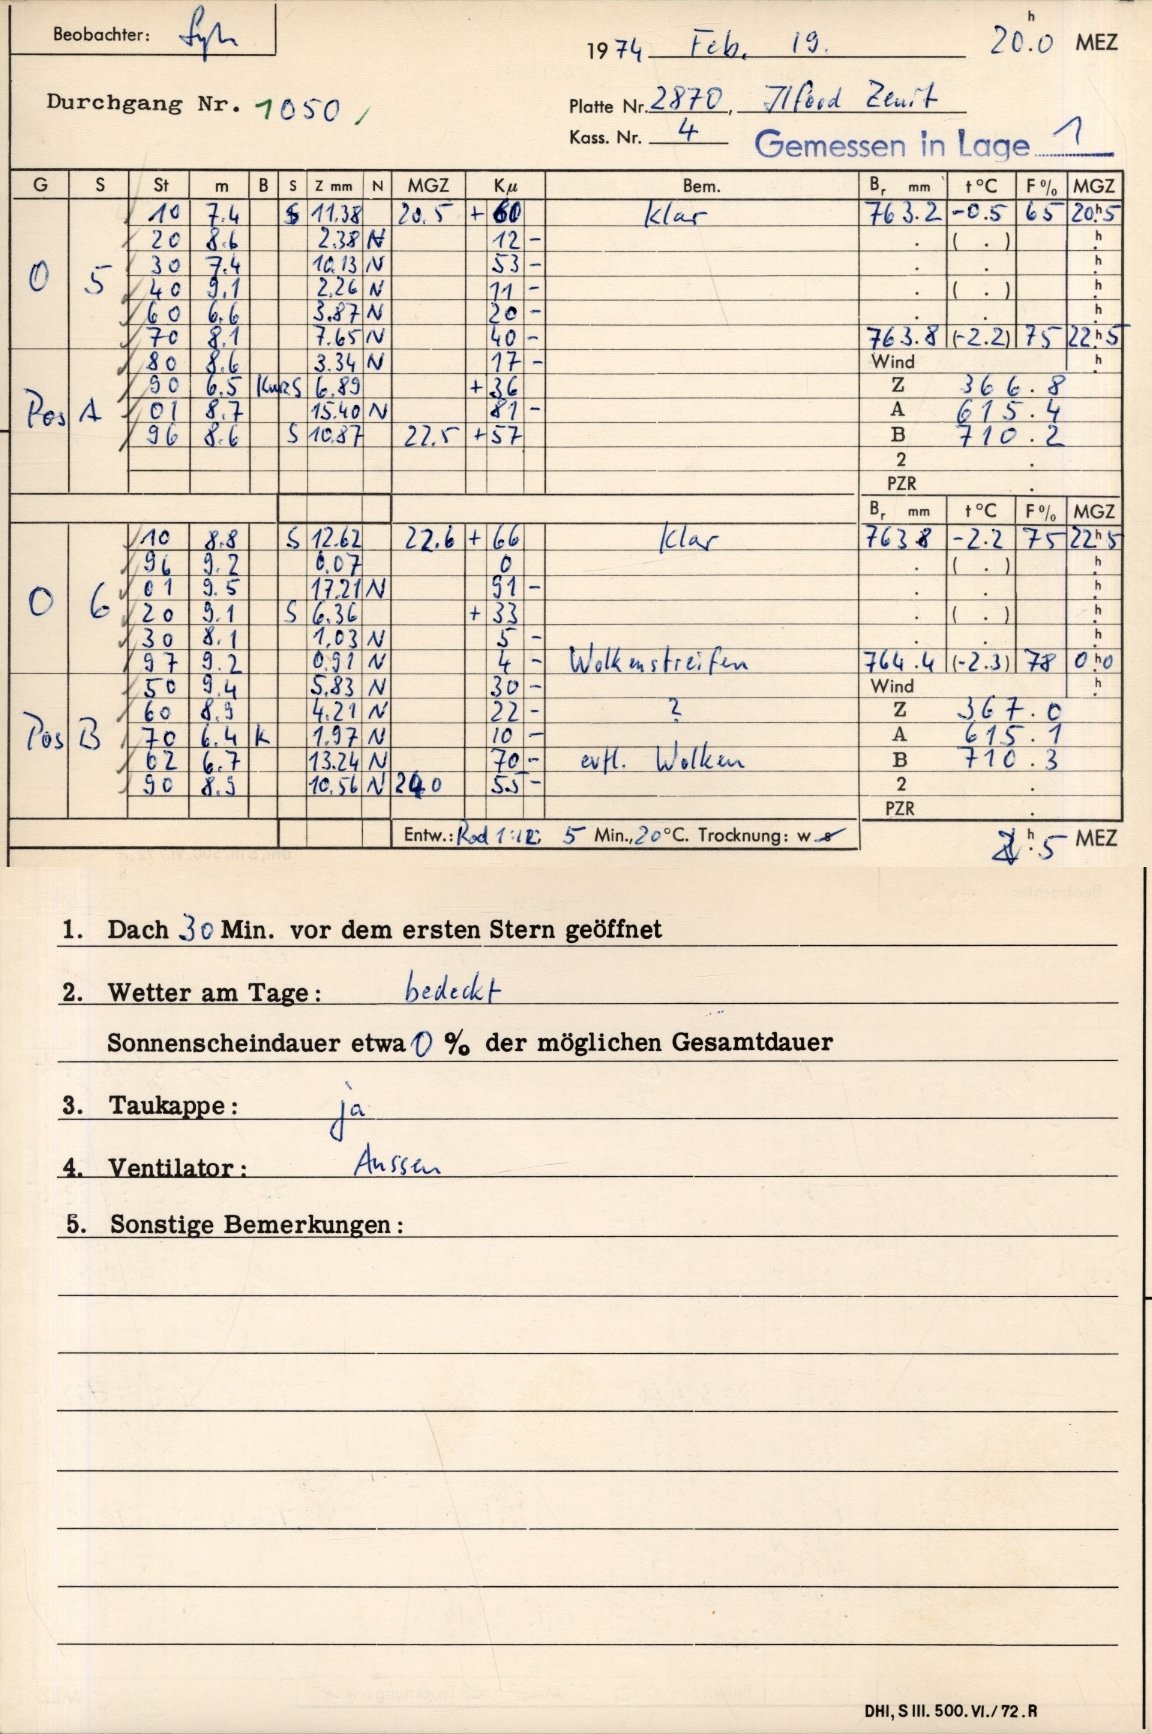 Beobachter:
1974 Feb. 19. 20.h0 MEZ
Durchgang Nr. 1050
Platte Nr. 2870, Ilford Zenit
Kass. Nr. 4 Gemessen in Lage 1
G S St m B S Z mm N MGZ Kμ Bem. Br mm t°C F% MGZ
10 7.4 S 11.38 20.5 + 60 klar 763.2 -0.5 65 20h.5
20 8.6 2.38 N 12 - . ( . ) h.
0 5 30 7.4 10.13 N 53 - . . h.
40 9.1 2.26 N 11 - . ( . ) h.
60 6.6 3.87 N 20 - . . h.
70 8.1 7.65 N 40 - 763.8 (-2.2) 75 22h.5
80 8.6 3.34 N 17 - Wind h.
Pos A 90 6.5 Kurz S 6.89 +36 Z 366.8
01 8.7 15.40 N 81 - A 615.4
96 8.6 S 10.87 22.5 +57 B 710.2
2 .
PZR .
Br mm t°C F% MGZ
10 8.8 S 12.62 22.6 + 66 klar 763 8 -2.2 75 22h.5
96 9.2 0.07 0 . ( . ) h.
0 6 01 9.5 17.21 N 91 - . . h.
20 9.1 S 6.36 + 33 . ( . ) h.
30 8.1 1.03 N 5 - . . h.
97 9.2 0.91 N 4 - Wolkenstreifen 764.4 (-2.3) 78 0h.0
50 9.4 5.83 N 30 - Wind h.
Pos B 60 8.9 4.21 N 22 - ? Z 367.0
70 6.4 K 1.97 N 10 - A 615.1
02 6.7 13.24 N 70 - evtl. Wolken B 710.3
90 8.9 10.56 N 24 0 55 - 2 .
PZR .
Entw.: Rod 1:12; 5 Min., 20°C. Trocknung: w s h.5 MEZ
1. Dach 30 Min. vor dem ersten Stern geöffnet
2. Wetter am Tage: bedeckt
Sonnenscheindauer etwa 0 % der möglichen Gesamtdauer
3. Taukappe: ja
4. Ventilator: Aussen
5. Sonstige Bemerkungen:
DHI, S III. 500. VI./72. R